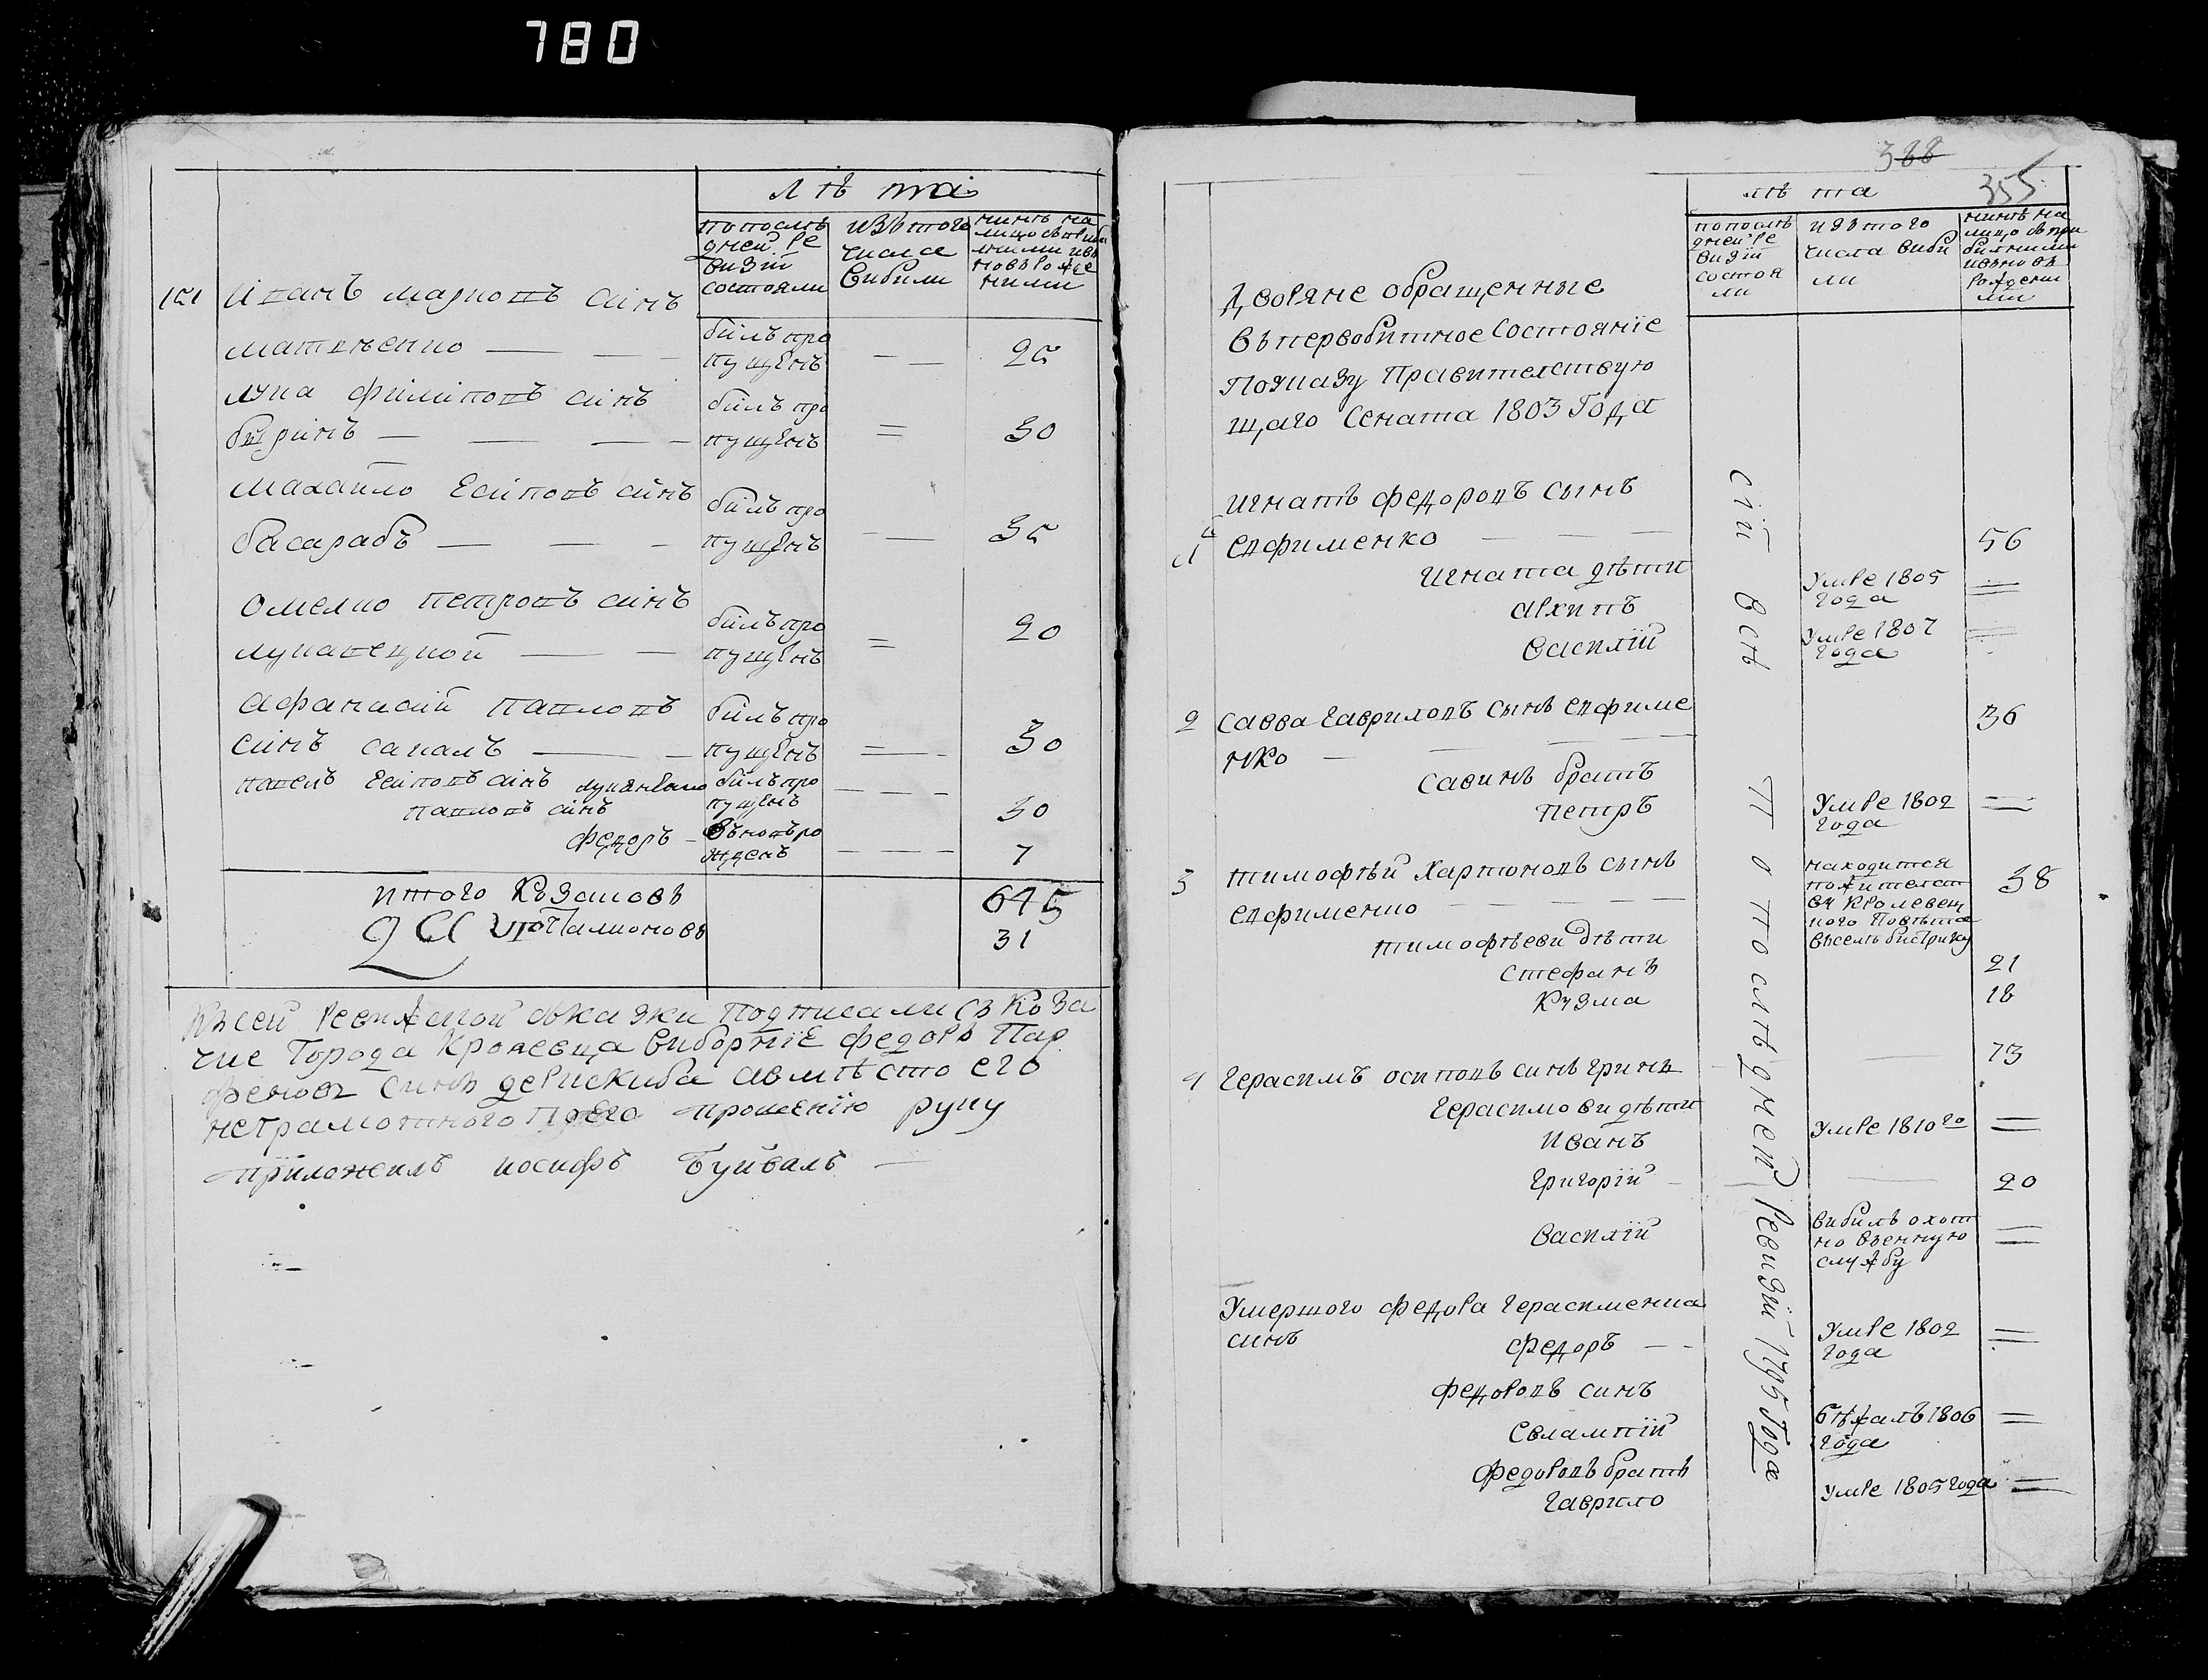 780
лѣ та
по послѣ
дней ре
визіи
состояли
изъ того
числа
вибили
нинѣ на
лицо съ прибы
лими и въ
новь рожде
ними
Иванъ марковъ синъ
матвѣенко — — — 25
билъ про
пущенъ
лука филиповъ синъ
билъ про
пущенъ
= 30
михайло есиповъ синъ
басарабъ — — —
билъ про
пущенъ
— — 35
омелко петровъ синъ
билъ про
пущенъ
= 20
афанасий павловъ
синъ сакалъ — —
билъ про
пущенъ
= 30
павелъ есиповъ синъ
билъ про
пущенъ
30
павловъ синъ
федоръ —
вновь ро
жденъ
7
итого козаковъ 645
31
Къ сей ревижской сказки подписали съ коза
чие Города Кролевца виборние федоръ Пар
феновъ синъ дерискиба а вмѣсто его
неграмотного по его прошению руку
приложилъ иосифъ Буйвалъ —
388
355
лѣ та
по послѣ
дней ре
визіи
состоя
ли
изъ того
числа виби
ли
нинѣ на
лицо съ при
билими
и вновь
рожденн
ми
Дворяне обращенные
въ первобитное Состоянïе
По указу Правителствую
щаго Сената 1803 Года
Игнатъ федоровъ сынъ
1 Евфименко — — — 56
Игната дѣти
Архипъ
умре 1805
года
=
Василïй
умре 1807
года
=
2 Савва Гавриловъ сынъ Евфиме 36
нко —
Савинъ братъ
Петръ
умре 1802
года
=
3 тимофѣй Харитоновъ сынъ
Евфименко — — —
находится
по жителст
ву Кролевец
кого Повѣта
въ селѣ бистрику
38
тимофѣеви дѣти
Стефанъ 21
Кузма 18
4 Герасимъ осиповъ синъ гринь — 73
Герасимови дѣти
Иванъ умре 1810 го =
Григорïй — 20
Василïй
вибилъ охот
но военную
службу
=
Умершого федора Герасименка
синъ федоръ — —
умре 1802
года
=
федоровъ синъ
Евлампïй
бѣжалъ 1806
года
=
федоровъ братъ
Гаврило
умре 1805 года =
сïи всѣ по послѣдней Ревизïи 1795 Года